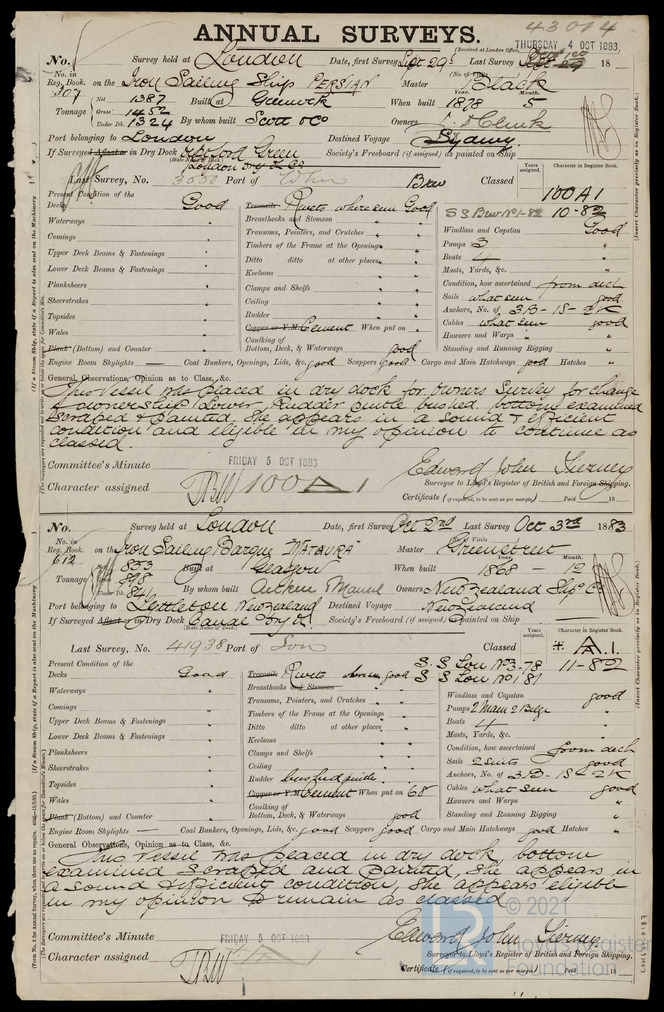 43014
ANNUAL SURVEYS.
(Received at London Office, THURSDAY 4 OCT 1883)
No. Survey held at London Date, first Survey Sept 29th Last Survey 18
No. in Reg. Book 307 on the Iron Sailing Ship PERSIAN Master Black
Tonnage Net 1387 Gross 1452 Under Dk. 1324
Built at Greenock When built 1878 5
By whom built Scott & Co Owners
Port belonging to London Destined Voyage Sydney
If Surveyed Afloat or in Dry Dock Green Society's Freeboard (if assigned) as painted on Ship
London Dry D Co
Last Survey, No. 3550 Port of Classed 100A1
Years assigned. Character in Register Book.
S S Bew No 1-82 10-82
Present Condition of the
Decks Good
Waterways "
Comings "
Upper Deck Beams & Fastenings "
Lower Deck Beams & Fastenings "
Planksheers "
Sheerstrakes "
Topsides "
Wales "
Plank (Bottom) and Counter "
Treenails Rivets where seen Good
Breasthooks and Stemson "
Transoms, Pointers, and Crutches "
Timbers of the Frame at the Openings "
Ditto ditto at other places "
Keelsons "
Clamps and Shelfs "
Ceiling "
Rudder "
Copper or Y.M. Cement When put on
Caulking of Bottom, Deck, & Waterways good
Windlass and Capstan Good
Pumps 3 "
Boats 4 "
Masts, Yards, &c. "
Condition, how ascertained from deck
Sails what seen good
Anchors, No. of 3B - 1S - 2K
Cables what seen good
Hawsers and Warps "
Standing and Running Rigging "
Engine Room Skylights — Coal Bunkers, Openings, Lids, &c. good Scuppers good Cargo and Main Hatchways good Hatches "
General Observations, Opinion as to Class, &c.
This vessel was placed in dry dock for owners Survey for change
of ownership Lower Rudder pintle bushed, bottom examined
scraped & painted. She appears in a sound & efficient
condition and eligible in my opinion to continue as
classed
Committee's Minute FRIDAY 5 OCT 1883
Character assigned 100A1
Edward John Tierney
Surveyor to Lloyd's Register of British and Foreign Shipping.
Certificate (if required, to be sent as per margin) Paid 18
No. Survey held at London Date, first Survey Oct 2nd Last Survey Oct 3rd 1883
No. in Reg. Book 612 on the Iron Sailing Barque "MATAURA" Master Greenstreet
Tonnage 853 898 841
Built at Glasgow When built 1868 - 12
By whom built Aitken Mansel Owners New Zealand Ship Co
Port belonging to Lyttelton New Zealand Destined Voyage New Zealand
If Surveyed Afloat or in Dry Dock Canal Dry D. Society's Freeboard (if assigned) painted on Ship
Last Survey, No. 41938 Port of Lon Classed A.1.
Years assigned. Character in Register Book.
S. S Lon No 3-78 11-82
S S Lon No 1 81
Present Condition of the
Decks Good
Waterways "
Comings "
Upper Deck Beams & Fastenings "
Lower Deck Beams & Fastenings "
Planksheers "
Sheerstrakes "
Topsides "
Wales "
Plank (Bottom) and Counter "
Treenails Rivets where seen good
Breasthooks and Stemson "
Transoms, Pointers, and Crutches "
Timbers of the Frame at the Openings "
Ditto ditto at other places "
Keelsons "
Clamps and Shelfs "
Ceiling "
Rudder bushed
Copper or Y.M. Cement When put on 68
Caulking of Bottom, Deck, & Waterways good
Windlass and Capstan good
Pumps 2 Main 2 Bilge "
Boats 4 "
Masts, Yards, &c. "
Condition, how ascertained from deck
Sails 2 suits good
Anchors, No. of 3B - 1S & 2K
Cables what seen good
Hawsers and Warps "
Standing and Running Rigging "
Engine Room Skylights — Coal Bunkers, Openings, Lids, &c. good Scuppers good Cargo and Main Hatchways good Hatches "
General Observations, Opinion as to Class, &c.
This vessel was placed in dry dock bottom
examined scraped and painted, she appears in
a sound & efficient condition, she appears eligible
in my opinion to remain as classed
Committee's Minute FRIDAY 5 OCT 1883
Character assigned
Edward John Tierney
Surveyor to Lloyd's Register of British and Foreign Shipping.
Certificate (if required, to be sent as per margin) Paid 18
© 2021
Lloyd's Register
Foundation